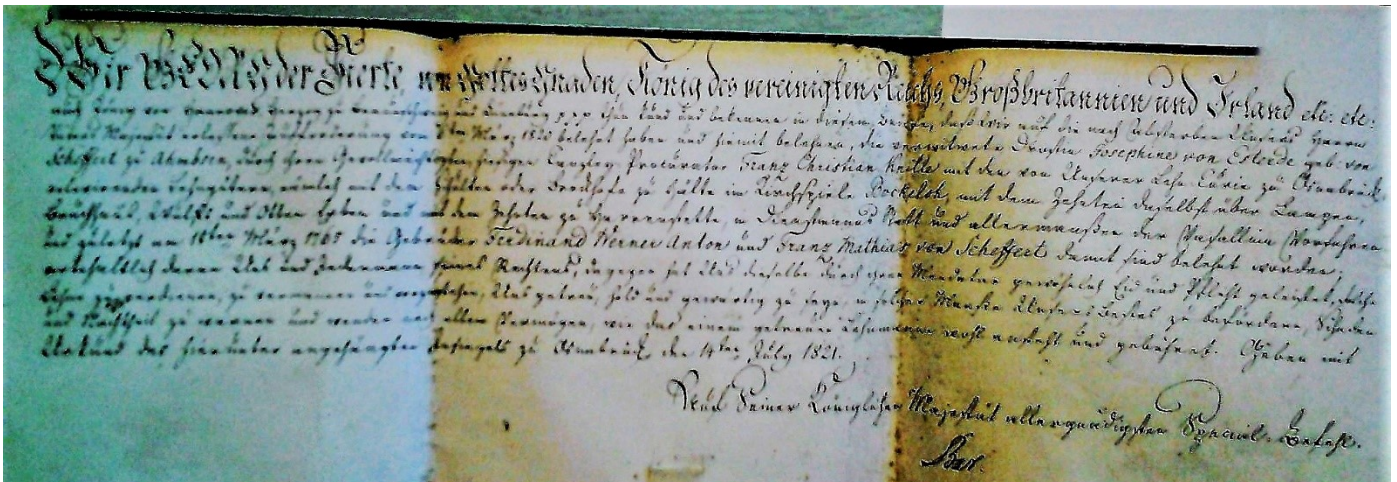 Wir GEORG der Vierte von Gottes Gnaden, König des vereinigten Reichs Großbritannien und Irland etc: etc:
auch König von Hannover Herzog zu Braunschweig und Lüneburg p p p thun kund und bekennen in diesem daß Wir auf die nach Absterben Unsers Herrn
Vaters Majestät erlassene von März belehnt haben und hiemit belehnen, die verwitwete Drostin Josephine von Estorde geb: von
Scheffert zu durch ihren Gevollmächtigten hiesigen Canzley Procurator Franz Christian Knille mit den von Unserer Lehn Curie zu Osnabrück
relevirenden Lehngütern, nämlich mit den oder zu im Kirchspiele Bockeloh, mit dem Zehnten daselbst über Langen,
und Otten und mit dem Zehnten zu in Statt und allermaaßen der Vasallinn Vorfahren
und zuletzt am 18ten März 1765 die Gebrüder Ferdinand Werner Anton und Franz Mathias von Scheffert damit sind belehnt worden;
vorbehaltlich deren Uns und Jedermann seines Rechtens, dagegen hat Uns dieselbe durch ihren Mandatar gewöhnlich Eid und Pflicht geleistet, solche
Lehne zu verdienen, zu vermannen und Uns getreu, hold und gewärtig zu seyn, in solcher Maaße Unser Bestes zu befördern, Schaden
und Nachtheil zu warnen und wenden nach allem Vermögen, wie das einem getreuen Lehnmanne wohl ansteht und gebühret. Geben mit
Urkund des hierunter angehängten Insiegels zu Osnabrück den 14ten July 1821.
Nach Seiner Königlichen Majestät allergnädigsten Special-Befehl.